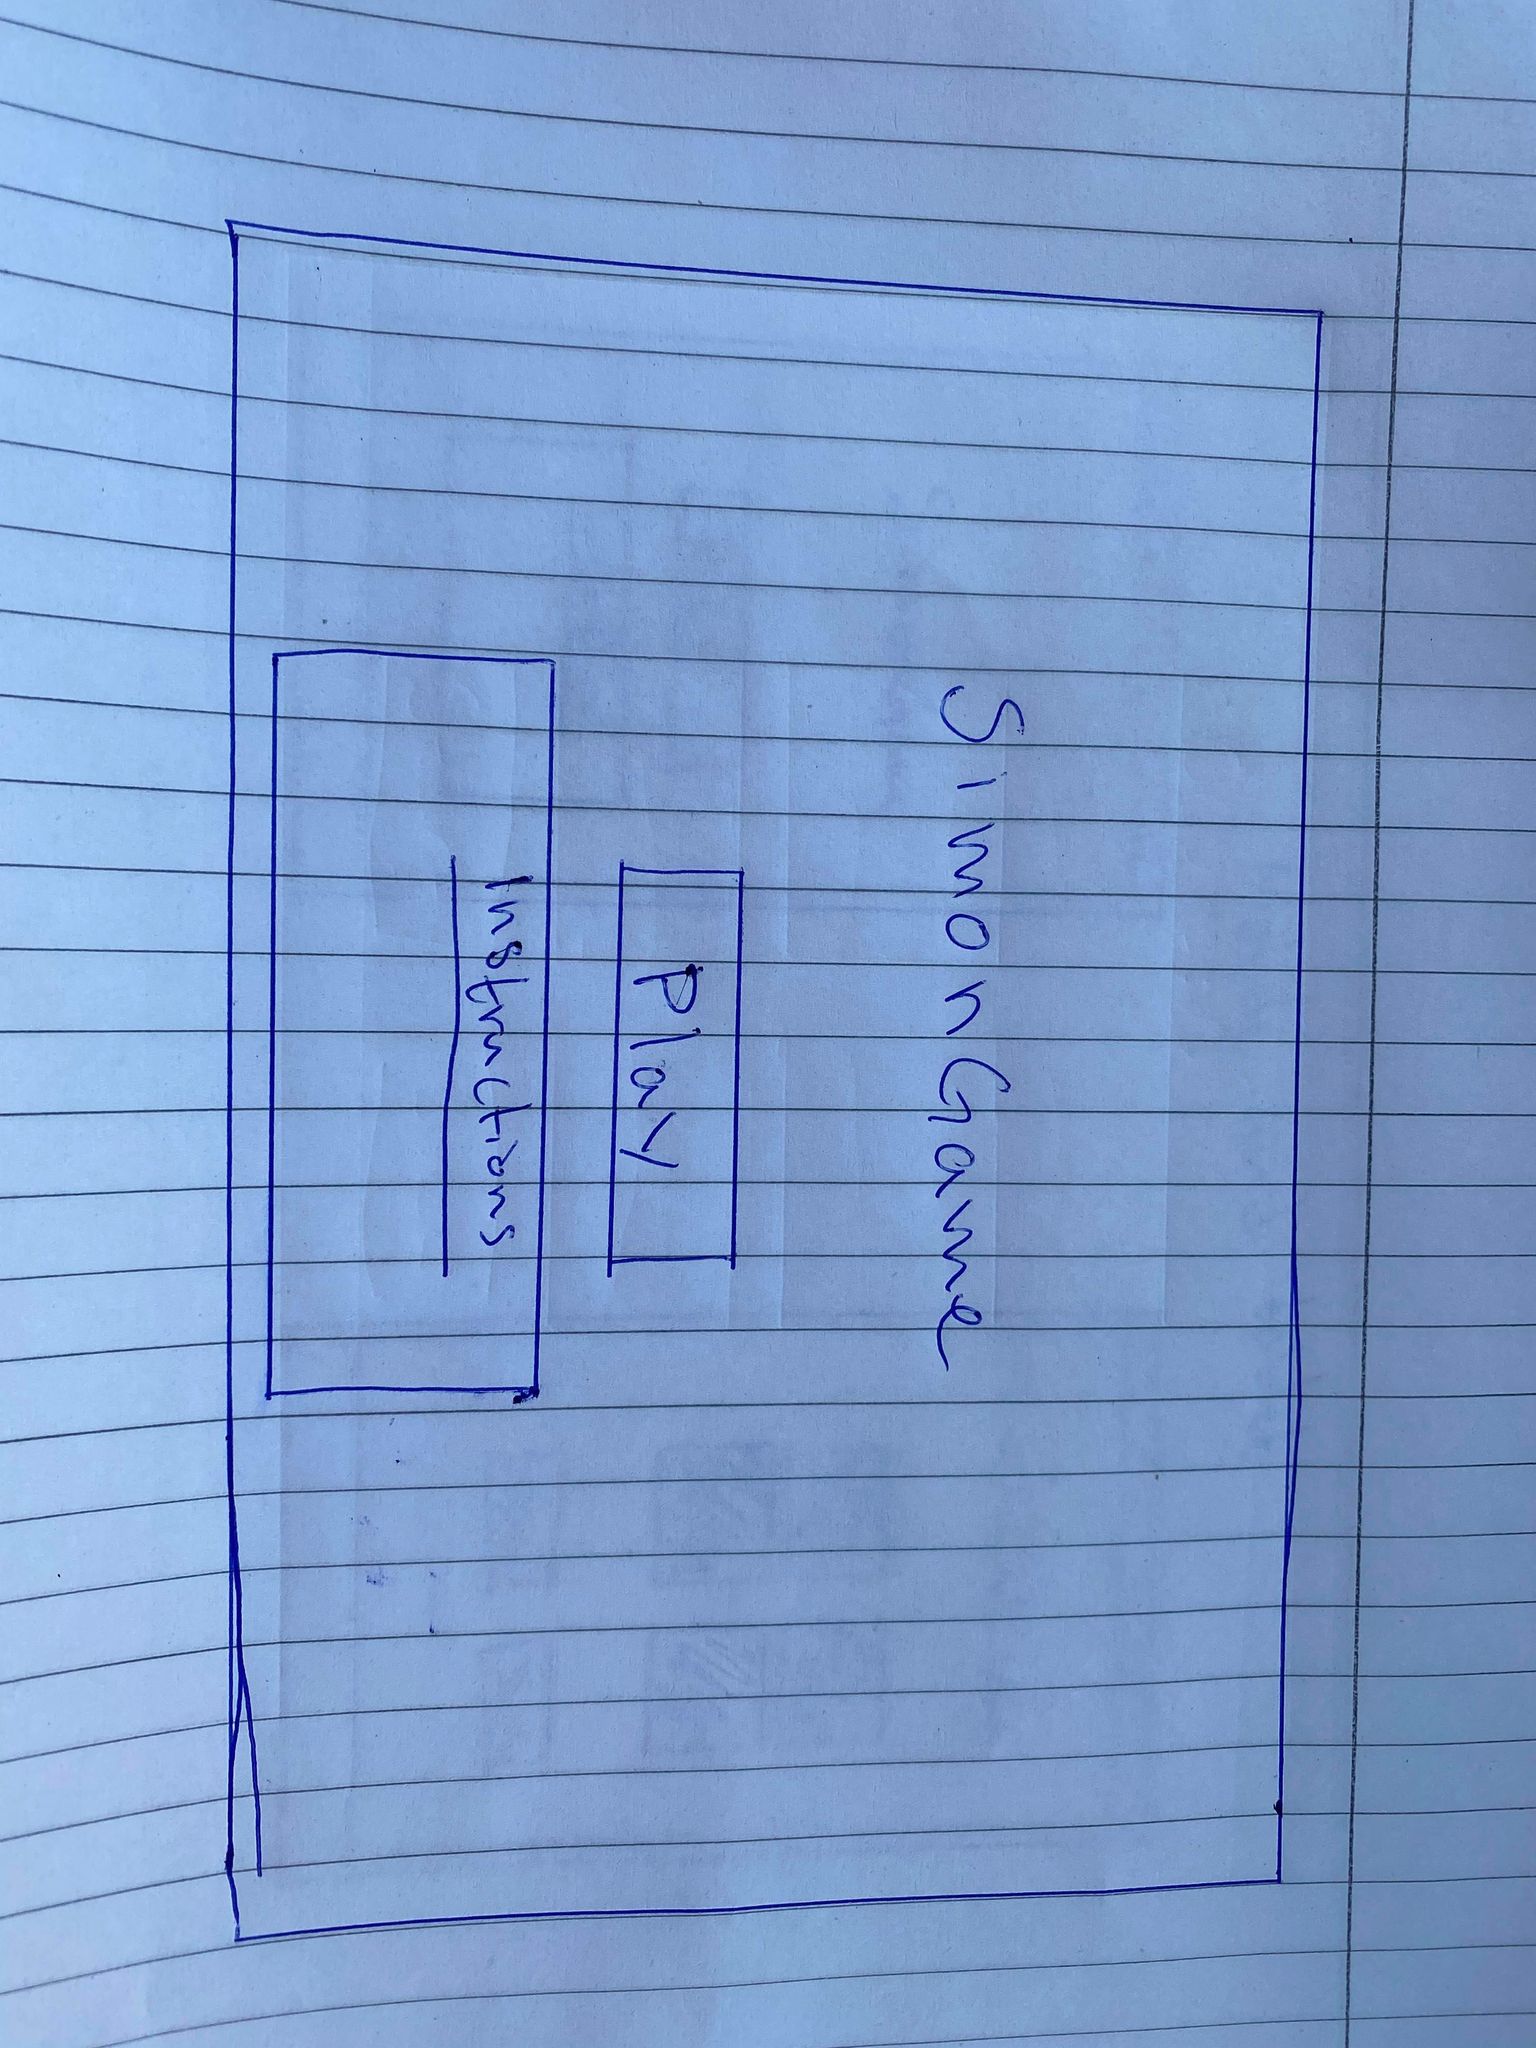 Simon Game
Play
Instructions